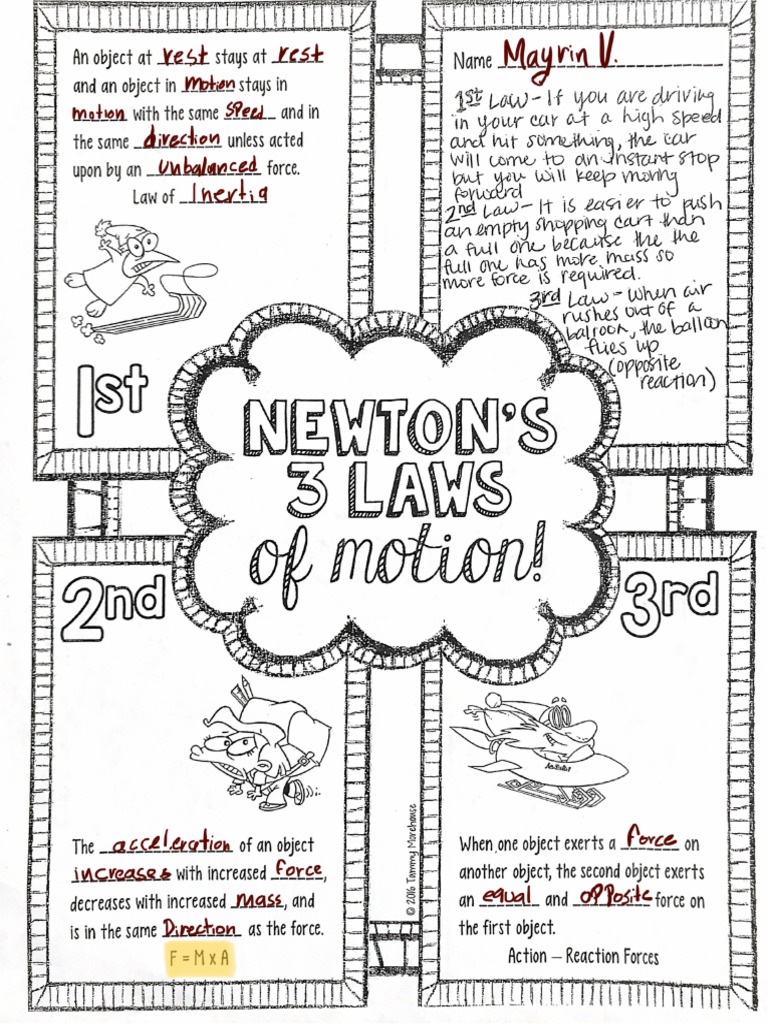 An object at rest stays at rest
and an object in Motion stays in
motion with the same Speed and in
the same direction unless acted
upon by an Unbalanced force.
Law of Inertia
1st
Name Mayrin V.
1st Law - If you are driving
in your car at a high speed
and hit something, the car
will come to an instant stop
but you will keep moving
forward
2nd Law - It is easier to push
an empty shopping cart than
a full one because the the
full one has more mass so
more force is required.
3rd Law - When air
rushes out of a
balroon, the balloon
flies up
(opposite
reaction)
NEWTON'S
3 LAWS
of motion!
2nd
The acceleration of an object
increases with increased force,
decreases with increased mass, and
is in the same Direction as the force.
F = M x A
© 2016 Tammy Morehouse
3rd
When one object exerts a force on
another object, the second object exerts
an equal and opposite force on
the first object.
Action – Reaction Forces